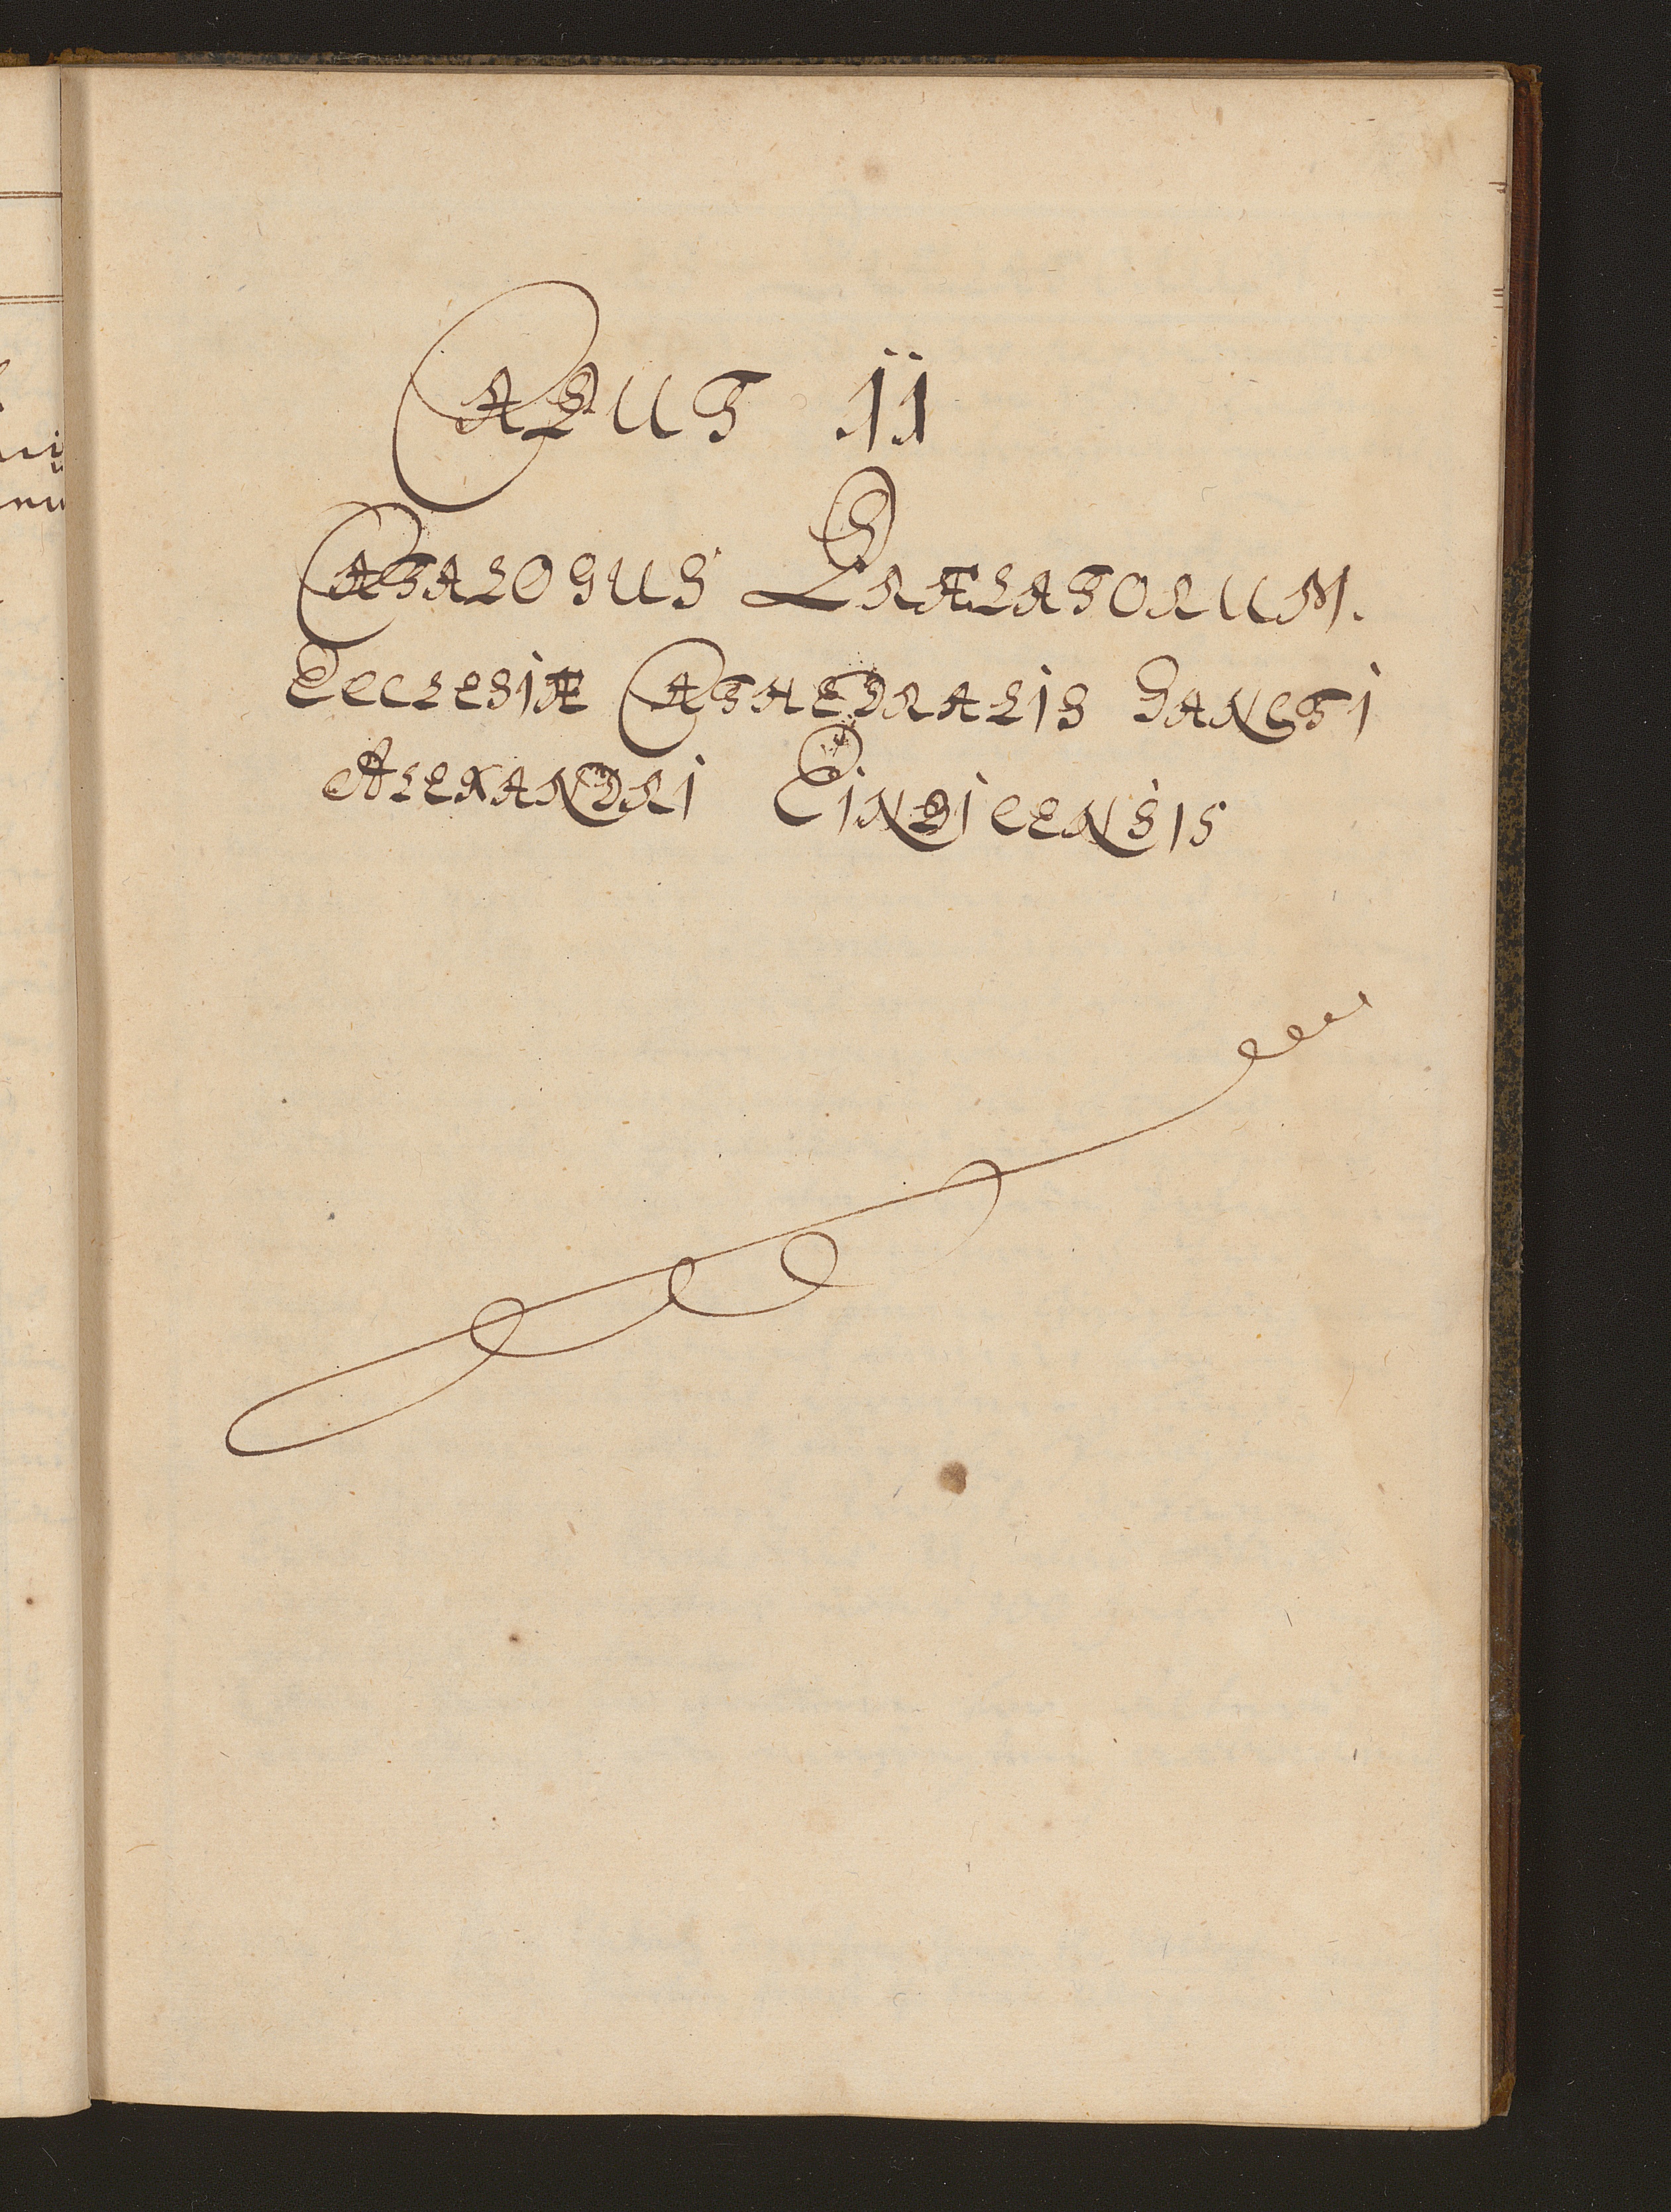 CAPUT II
CATALOGUS PRÆLATORUM.
ECCLESIÆ CATHEDRALIS SANCTI
ALEXANDRI EINBICENSIS